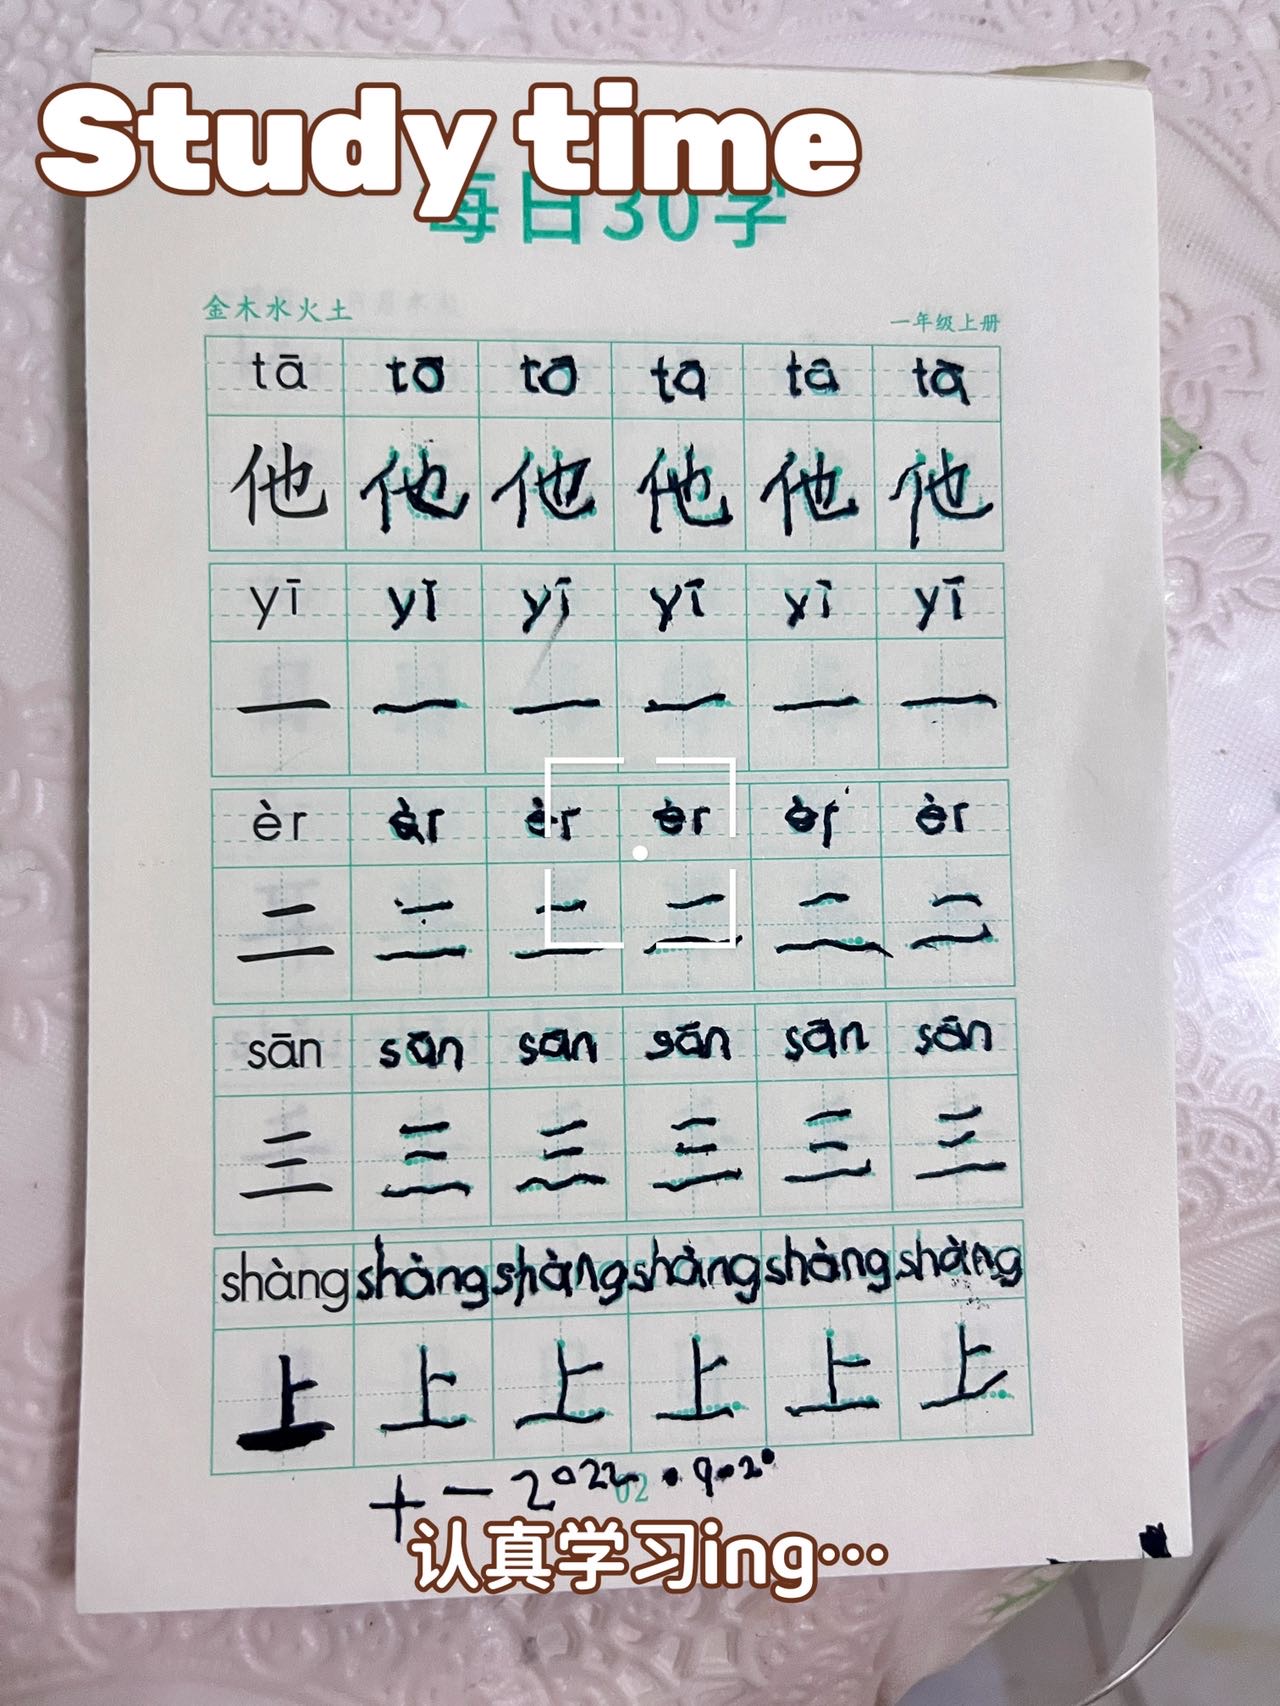 Study time
每日30字
金木水火土
一年级上册
tā tā tā tā tā tā
他 他 他 他 他 他
yī yī yī yī yī yī
一 一 一 一 一 一
èr èr èr èr èr èr
二 二 二 二 二 二
sān sān sān sān sān sān
三 三 三 三 三 三
shàng shàng shàng shàng shàng shàng
上 上 上 上 上 上
十一 2022.9.2
02
认真学习ing…